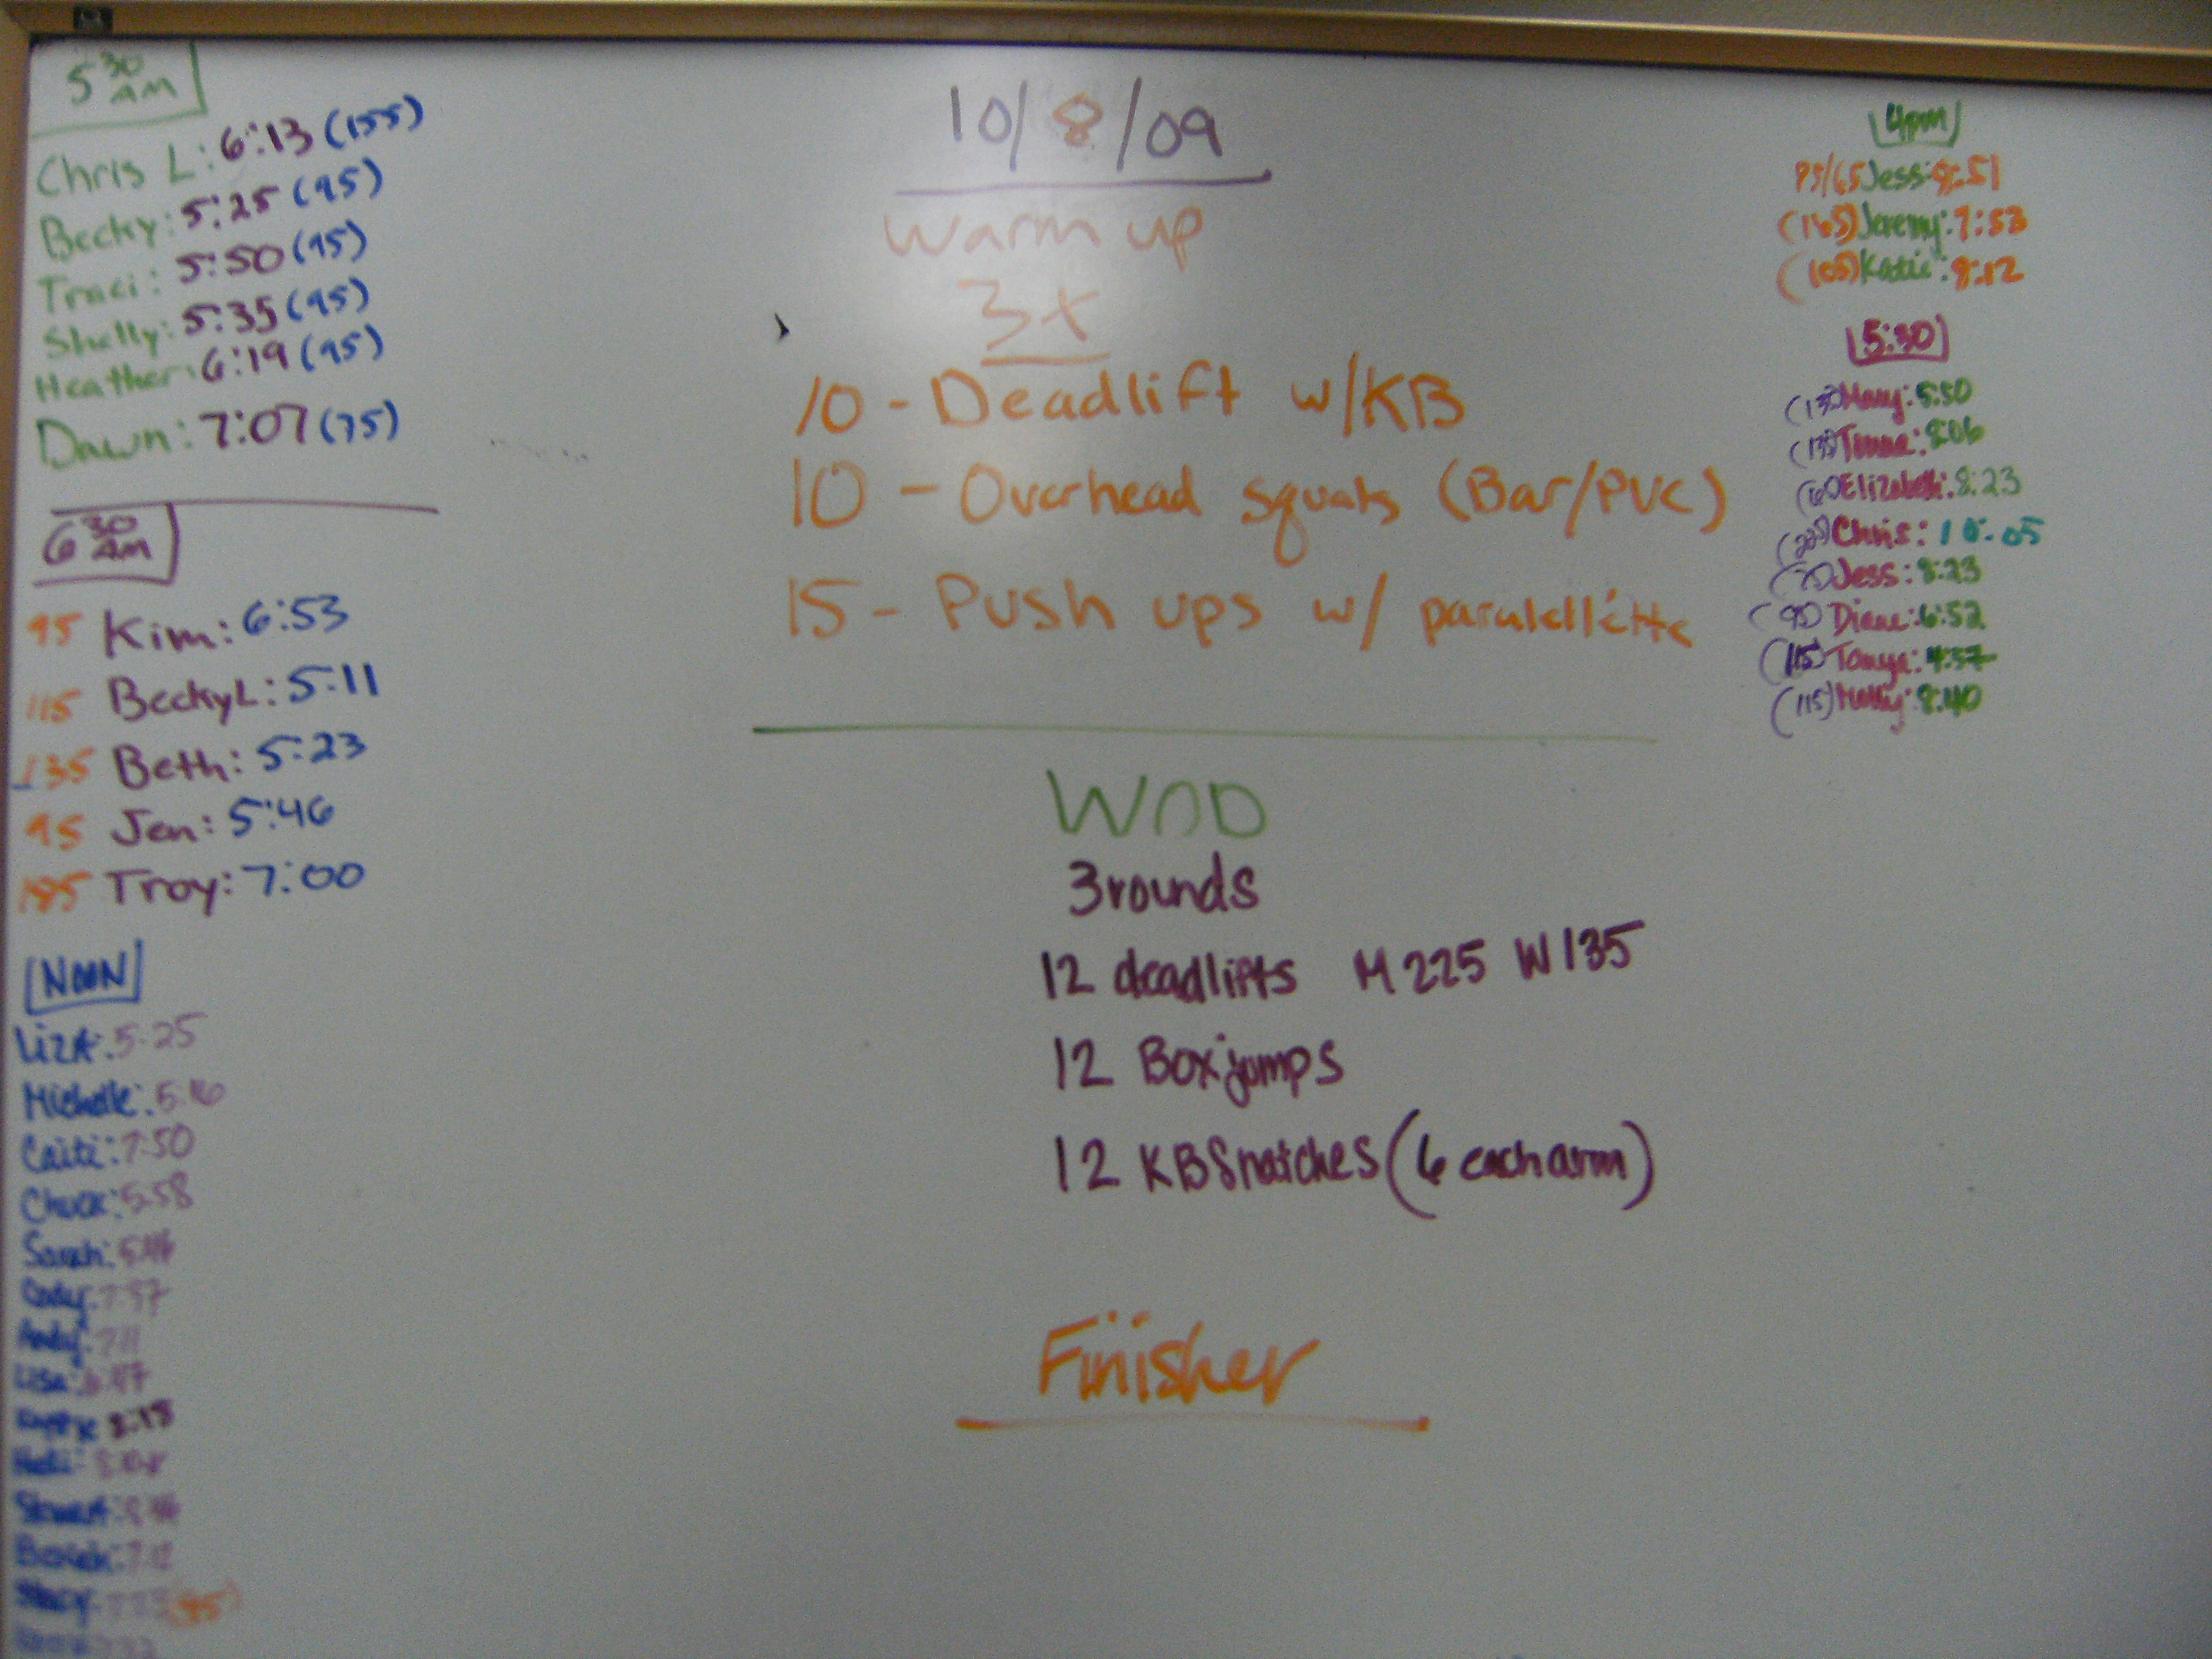 5 30 AM
Chris L: 6:13 (155)
Becky: 5:25 (95)
Traci: 5:50 (95)
Shelly: 5:35 (95)
Heather: 6:19 (95)
Dawn: 7:07 (75)
6 30 AM
95 Kim: 6:53
115 Becky L: 5:11
135 Beth: 5:23
95 Jen: 5:46
185 Troy: 7:00
NOON
LizA: 5:25
Michelle: 5:16
Caiti: 7:50
Chuck: 5:58
Sarah:
Cody: 7:57
Andy: 7:11
Lisa:
8:18
(95)
10/8/09
Warm up
3x
10 - Deadlift w/KB
10 - Overhead squats (Bar/PVC)
15 - Push ups w/ paralellette
WOD
3 rounds
12 deadlifts M 225 W 135
12 Box jumps
12 KB Snatches (6 each arm)
Finisher
4pm
Jess:
Jeremy: 7:53
(105) Katie: 8:12
5:30
Mary: 5:50
8:06
Elizabeth: 8:23
Chris: 10:05
Jess: 8:23
(95) Diane: 6:52
(115) Tanya: 4:57
(115) 8:40